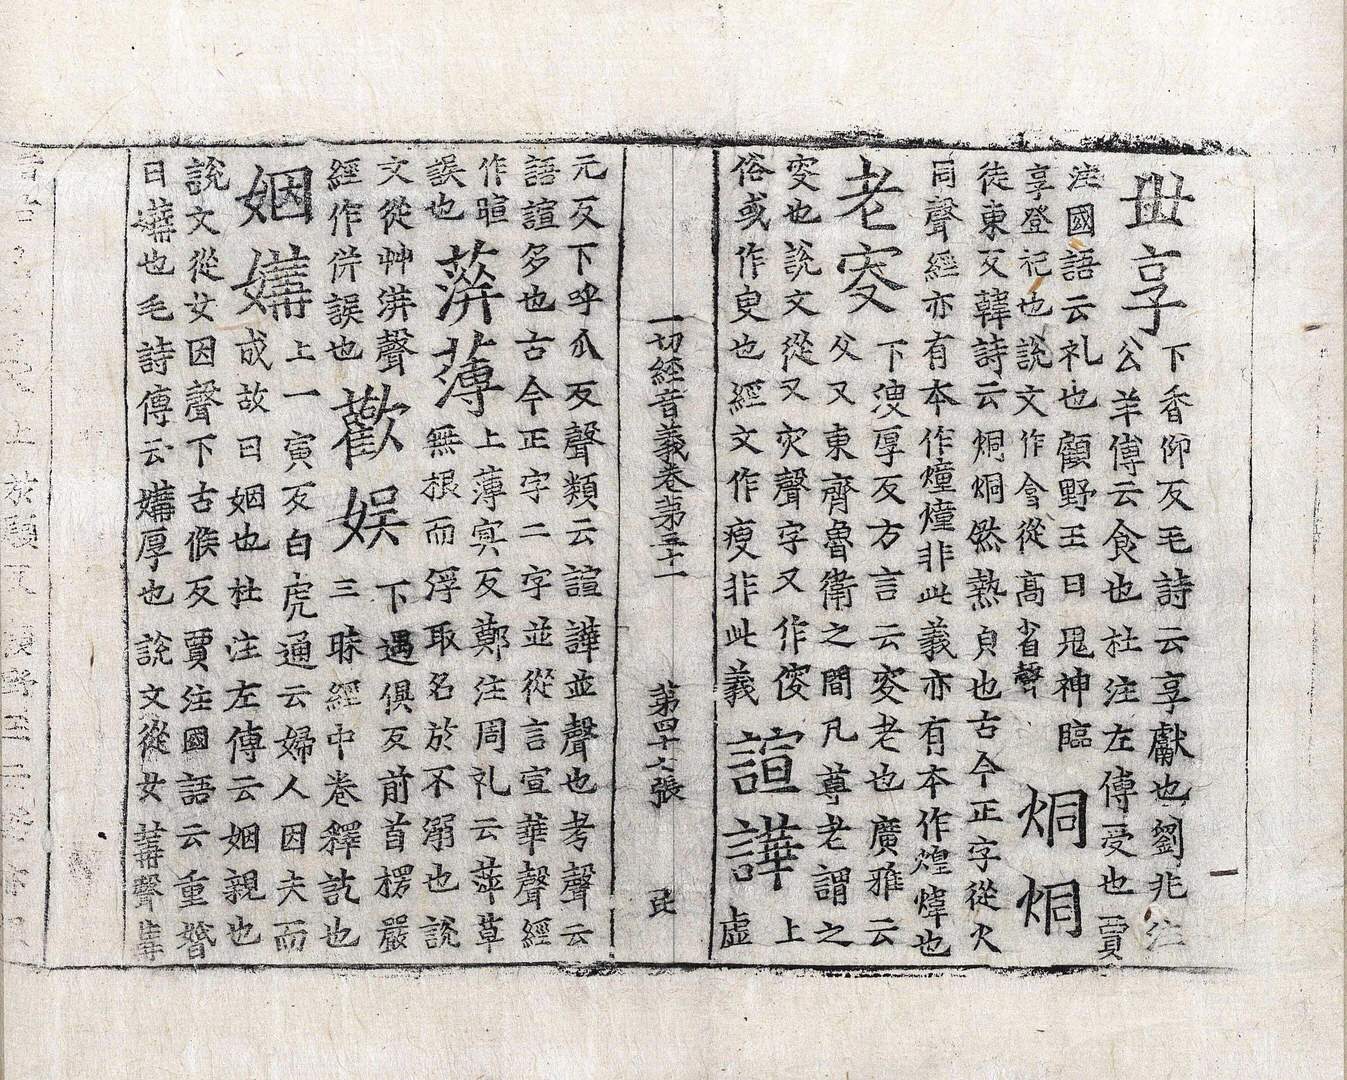 毌享下香仰反毛詩云享獻也劉兆注
公羊傳云食也杜注左傳受也賈
注國語云礼也顧野王曰鬼神臨
享登祀也說文作亯從高省聲 烔烔
徒東反韓詩云烔烔然熱皃也古今正字從火
同聲經亦有本作燑燑非此義亦有本作煌煒也
老叜下溲厚反方言云叜老也廣雅云
父又東齊魯衛之間凡尊老謂之
叜也說文從又灾聲字又作傁
俗或作叟也經文作瘦非此義 諠譁上虛
一切經音義卷第三十一 第四十七張
元反下呼瓜反聲類云諠譁並聲也考聲云
語諠多也古今正字二字並從言宣華聲經
作喧誤也 蓱薄上薄𡨋反鄭注周礼云萍草
無根而浮取名於不溺也說
文從艸洴聲經作併誤也 歡娛下遇俱反前首楞嚴
三昧經中卷釋訖也
姻媾上一寅反白虎通云婦人因夫而
成故曰姻也杜注左傳云姻親也
說文從女因聲下古候反賈注國語云重婚
曰媾也毛詩傳云媾厚也說文從女冓聲冓